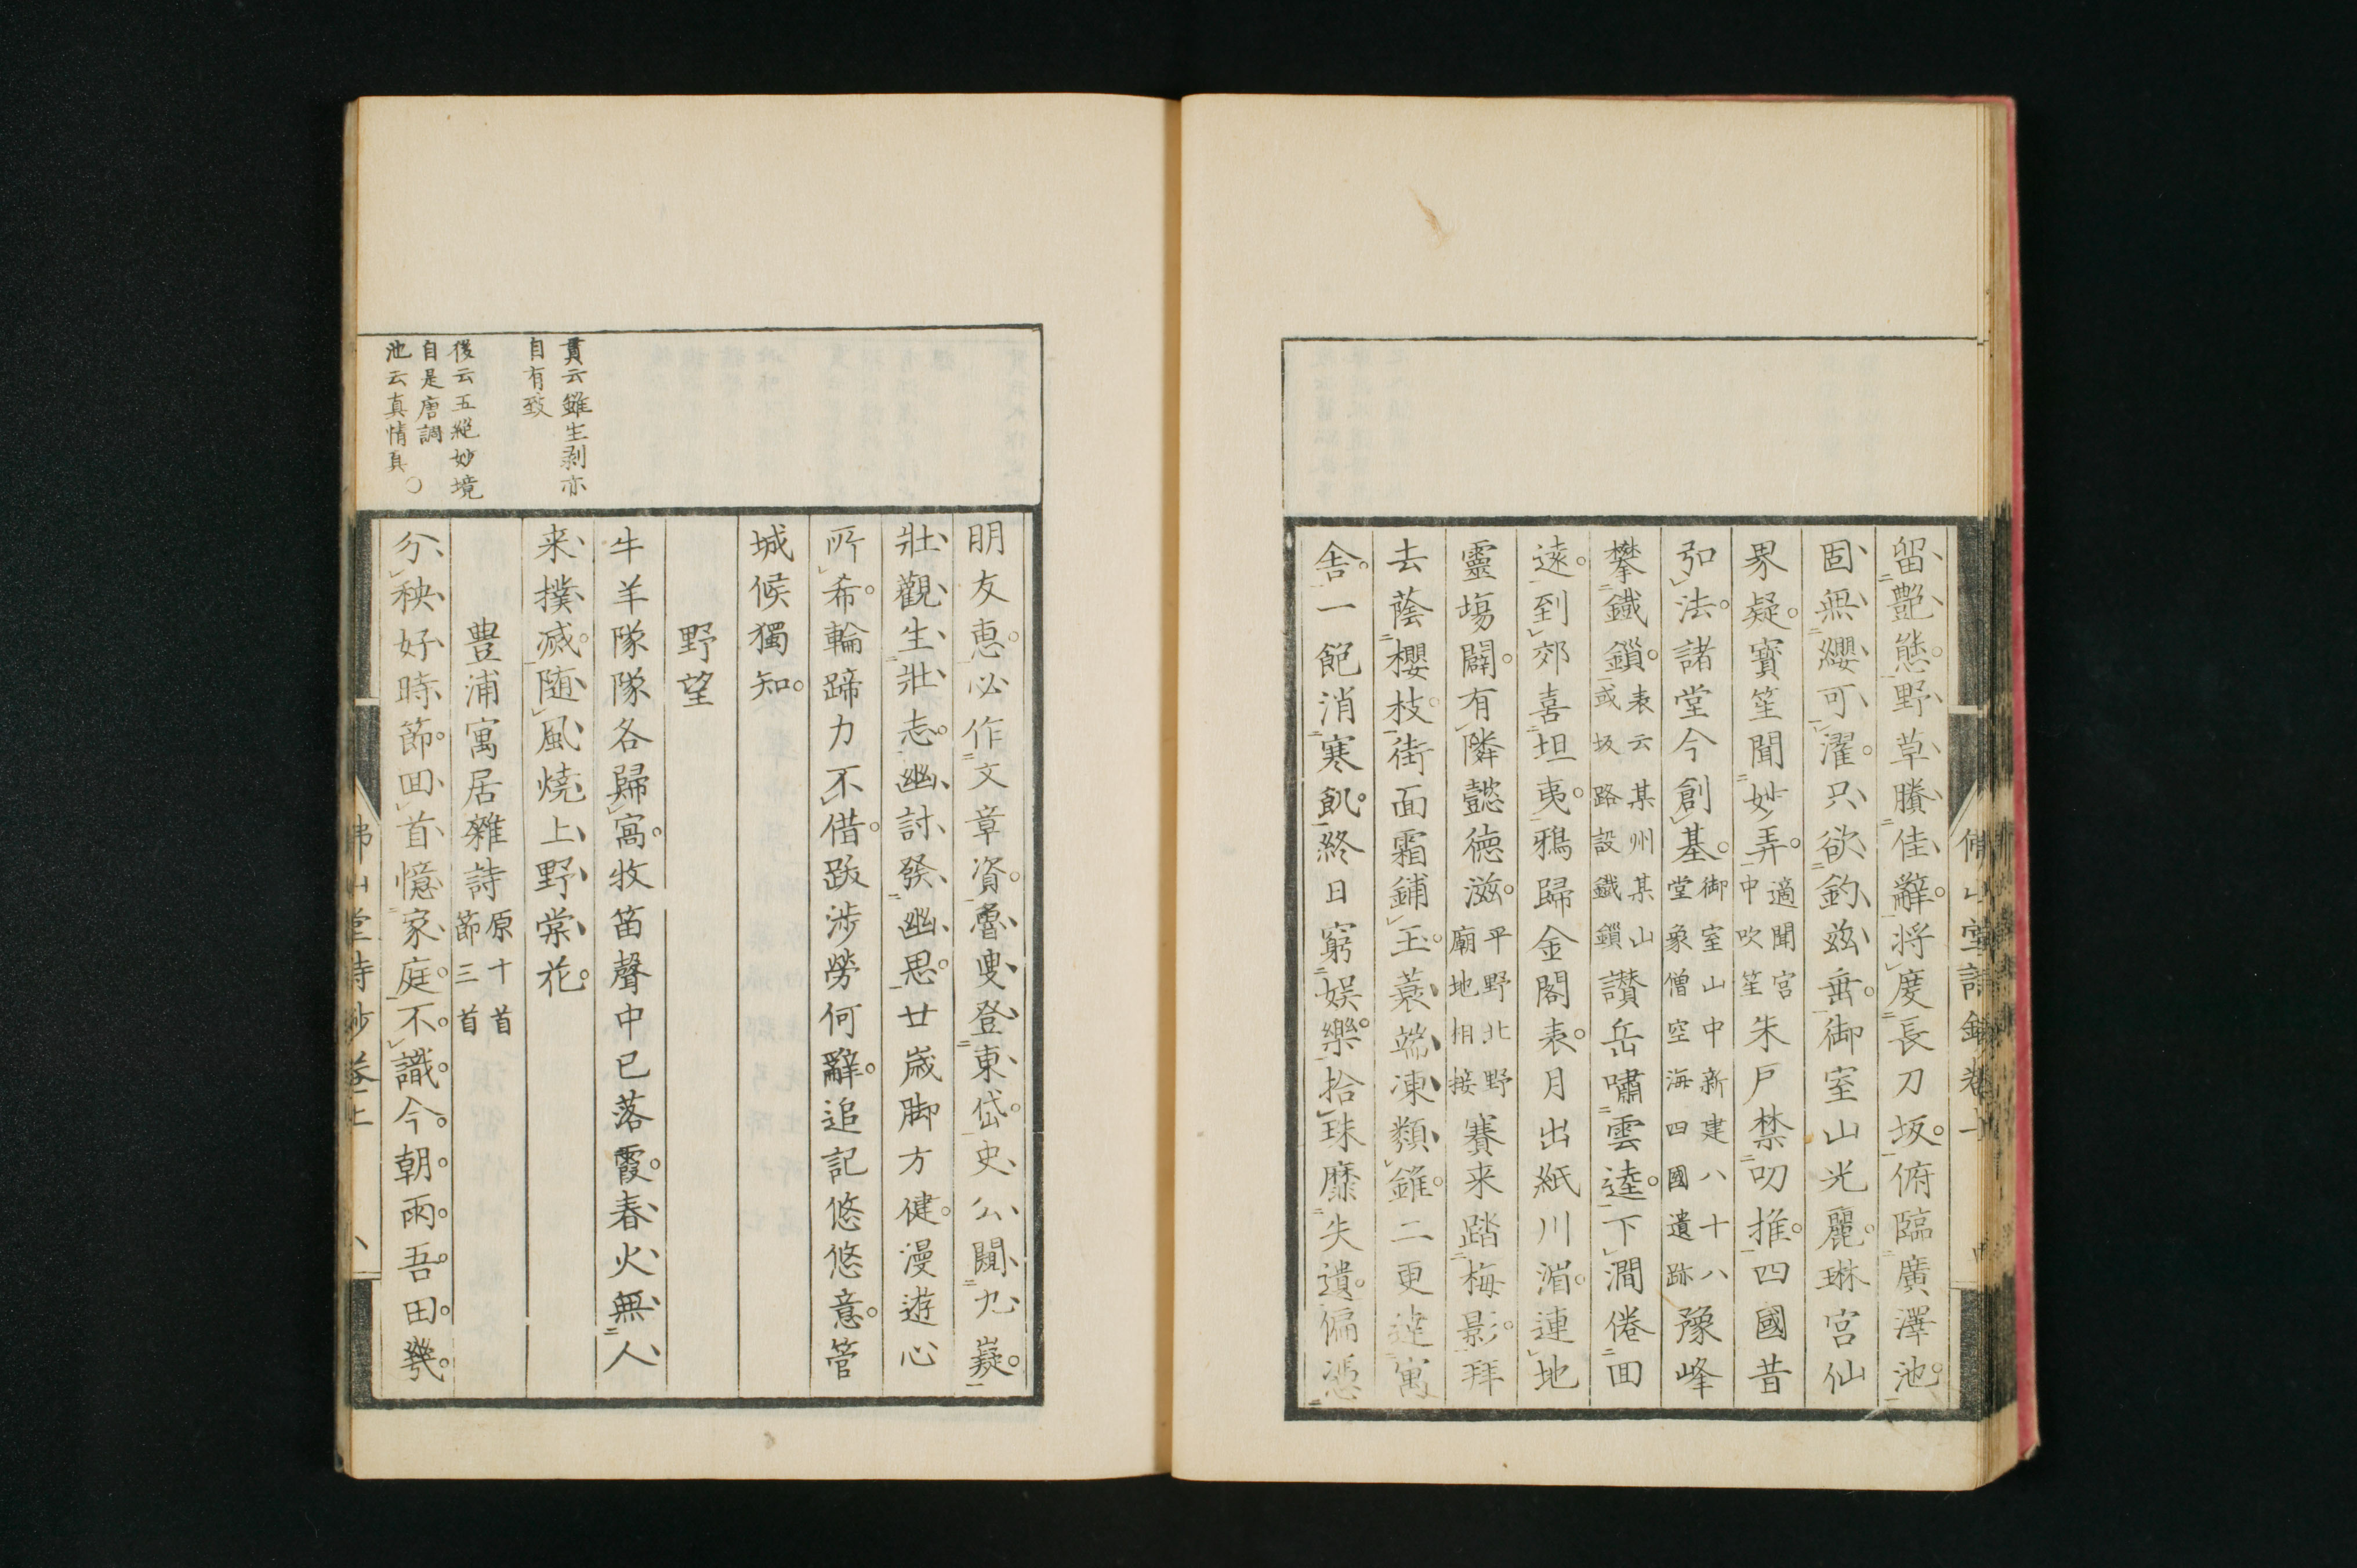 留艶態野草賸佳辭将度長刀坂俯臨廣澤池
固無纓可濯只欲釣茲垂御室山光麗琳宮仙
界疑寳笙聞妙弄適聞宮中吹笙朱戸禁叨推四國昔
弘法諸堂今創基御室山中新建八十八堂象僧空海四國遺跡豫峰
攀鐵鎖表云某州某山或坂路設鐵鎖讃岳嘯雲逵下澗倦回
遠到郊喜坦夷鴉歸金閣表月出紙川湄連地
靈塲闢有隣懿德滋平野北野廟地相接賽来踏梅影拜
去蔭櫻枝街面霜鋪玉蓑端凍類錐二更達寓
舎一飽消寒飢終日窮娯樂拾珠靡失遺偏憑
明友恵必作文章資魯叟登東岱史公闚九嶷
壯觀生壯志幽討發幽思廿歳脚方健漫遊心
所希輪蹄力不借跋渉勞何辭追記悠悠意管
城候獨知
野望
牛羊隊隊各歸窩牧笛聲中已落霞春火無人
来撲滅随風燒上野棠花
豊浦寓居雜詩原十首節三首
分秧好時節回首憶家庭不識今朝雨吾田幾
貫云雖生剥亦
自有致
後云五絶妙境
自是唐調〇
池云真情真